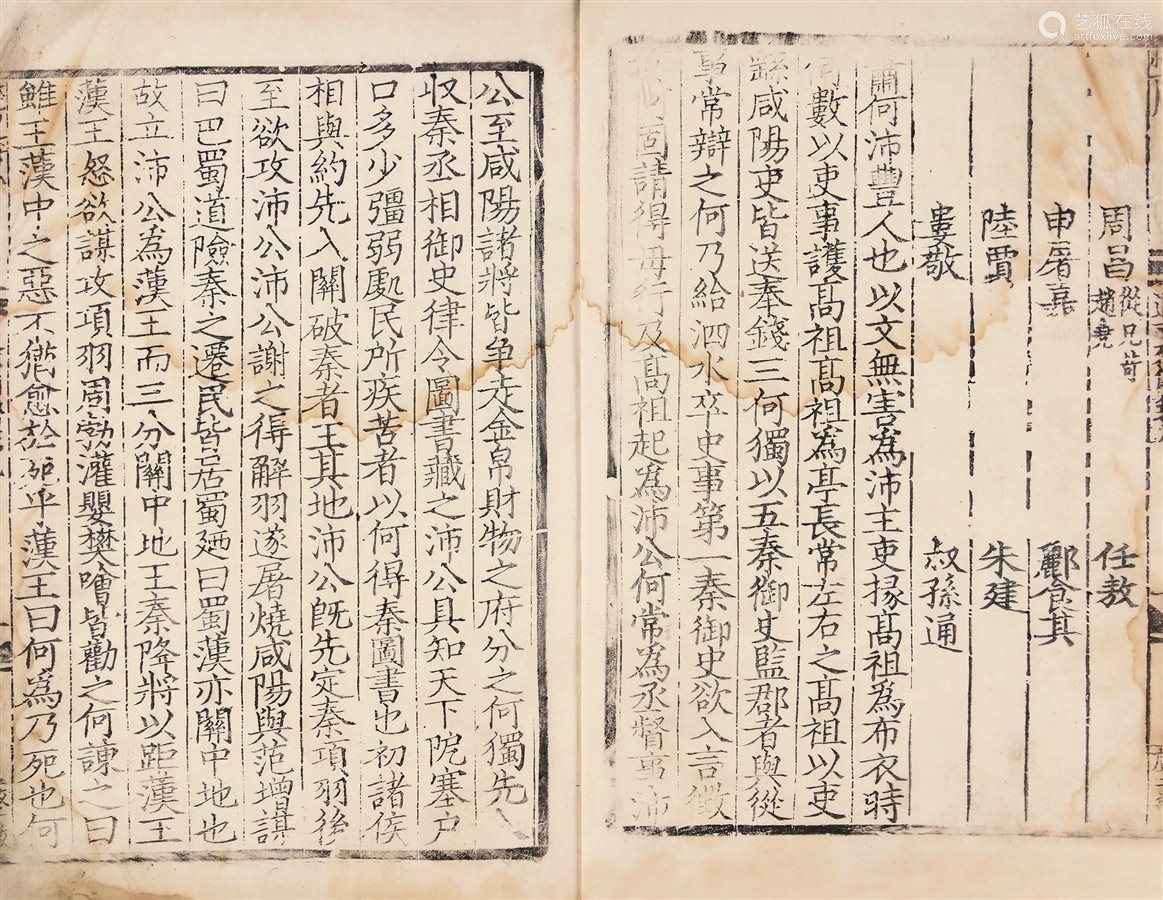 艺狐在线
artfoxlive.com
周昌 從兄苛 趙堯 任敖
申屠嘉 酈食其
陸賈 朱建
婁敬 叔孫通
蕭何沛豐人也以文無害為沛主吏掾高祖為布衣時
何數以吏事護高祖高祖為亭長常左右之高祖以吏
繇咸陽吏皆送奉錢三何獨以五秦御史監郡者與從
事常辯之何乃給泗水卒史事第一秦御史欲入言徵
何何固請得毋行及高祖起為沛公何常為丞督事沛
公至咸陽諸將皆争走金帛財物之府分之何獨先入
収秦丞相御史律令圖書藏之沛公具知天下阨塞户
口多少彊弱處民所疾苦者以何得秦圖書也初諸侯
相與約先入關破秦者王其地沛公旣先定秦項羽後
至欲攻沛公沛公謝之得解羽遂屠燒咸陽與范增謀
曰巴蜀道險秦之遷民皆居蜀廼曰蜀漢亦關中地也
故立沛公為漢王而三分關中地王秦降將以距漢王
漢王怒欲謀攻項羽周勃灌嬰樊噲皆勸之何諫之曰
雖王漢中之惡不猶愈於死乎漢王曰何為乃死也何